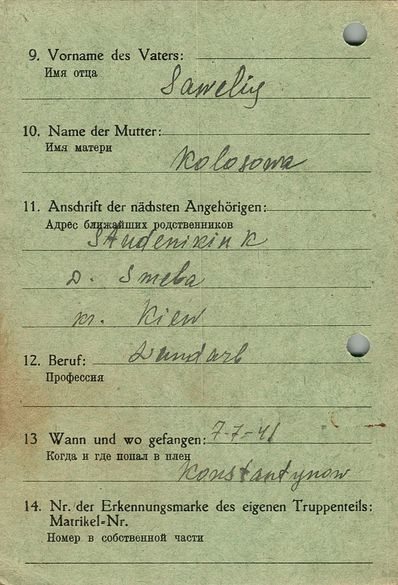 9. Vorname des Vaters:
Имя отца
Sawelij
10. Name der Mutter:
Имя матери
Kolosowa
11. Anschrift der nächsten Angehörigen:
Адрес ближайших родственников
Studenikin K
D. Smela
kr. Kiew
12. Beruf: Landarb
Профессия
13 Wann und wo gefangen: 7-7-41
Когда и где попал в плен
Konstantynow
14. Nr. der Erkennungsmarke des eigenen Truppenteils:
Matrikel-Nr.
Номер в собственной части